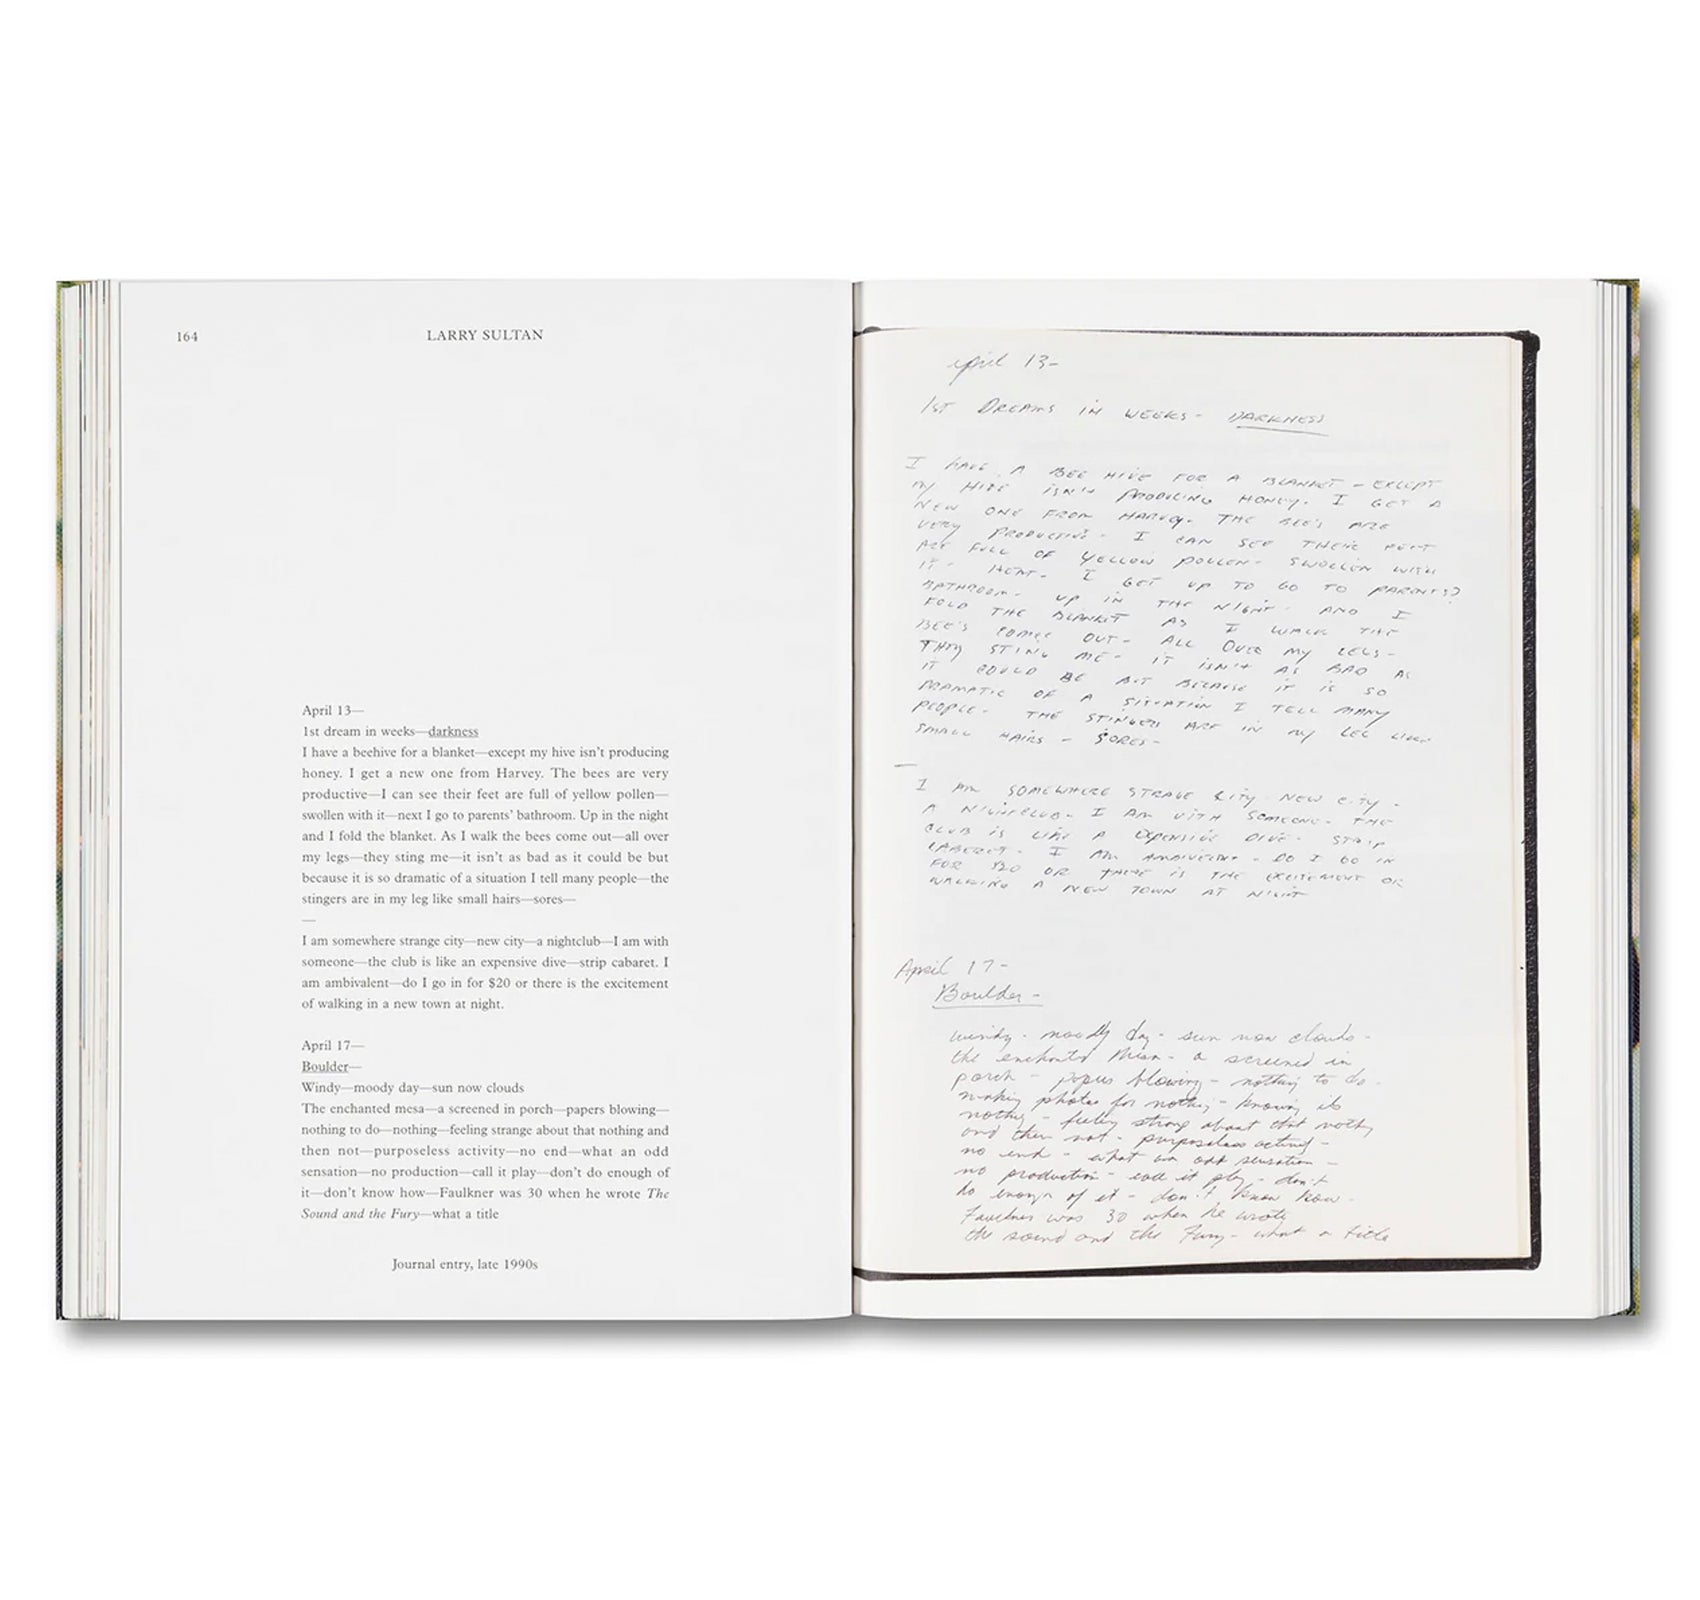 164
LARRY SULTAN
April 13—
1st dream in weeks—darkness
I have a beehive for a blanket—except my hive isn't producing
honey. I get a new one from Harvey. The bees are very
productive—I can see their feet are full of yellow pollen—
swollen with it—next I go to parents' bathroom. Up in the night
and I fold the blanket. As I walk the bees come out—all over
my legs—they sting me—it isn't as bad as it could be but
because it is so dramatic of a situation I tell many people—the
stingers are in my leg like small hairs—sores—
—
I am somewhere strange city—new city—a nightclub—I am with
someone—the club is like an expensive dive—strip cabaret. I
am ambivalent—do I go in for $20 or there is the excitement
of walking in a new town at night.
April 17—
Boulder—
Windy—moody day—sun now clouds
The enchanted mesa—a screened in porch—papers blowing—
nothing to do—nothing—feeling strange about that nothing and
then not—purposeless activity—no end—what an odd
sensation—no production—call it play—don't do enough of
it—don't know how—Faulkner was 30 when he wrote The
Sound and the Fury—what a title
Journal entry, late 1990s
April 13-
1ST DREAMS IN WEEKS - DARKNESS
I HAVE A BEE HIVE FOR A BLANKET - EXCEPT
MY HIVE ISN'T PRODUCING HONEY. I GET A
NEW ONE FROM HARVEY. THE BEE'S ARE
VERY PRODUCTIVE - I CAN SEE THEIR FEET
ARE FULL OF YELLOW POLLEN - SWOLLEN WITH
IT - I GET UP TO GO TO PARENTS?
BATHROOM - UP IN THE NIGHT - AND I
FOLD THE BLANKET AS I WALK THE
BEE'S COME OUT - ALL OVER MY LEGS -
THEY STING ME - IT ISN'T AS BAD AS
IT COULD BE BUT BECAUSE IT IS SO
DRAMATIC OF A SITUATION I TELL MANY
PEOPLE - THE STINGERS ARE IN MY LEG LIKE
SMALL HAIRS - SORES -
—
I AM SOMEWHERE STRANGE CITY - NEW CITY -
A NIGHTCLUB - I AM WITH SOMEONE - THE
CLUB IS LIKE A EXPENSIVE DIVE - STRIP
CABERET - I AM AMBIVELENT - DO I GO IN
FOR $20 OR THERE IS THE EXCITEMENT OF
WALKING A NEW TOWN AT NIGHT
April 17-
Boulder -
windy - moody day - sun now clouds -
the enchanted mesa - a screened in
porch - papers blowing - nothing to do -
making photos for nothing - knowing its
nothing - feeling strange about that nothing
and then not - purposeless activity -
no end - what an odd sensation -
no production - call it play - don't
do enough of it - don't know how -
Faulkner was 30 when he wrote
the sound and the Fury - what a title